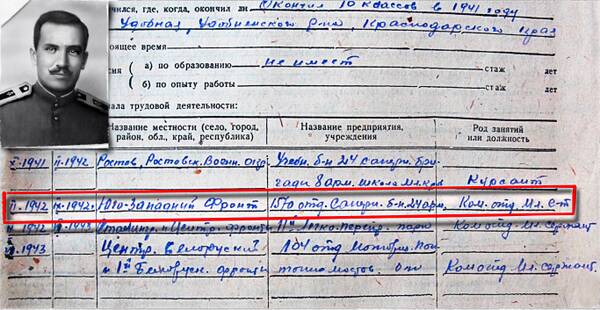 чился, где, когда, окончил ли Окончил 10 классов в 1941 году
Удобная, Удобненского р-на, Краснодарского Края
тоящее время
а) по образованию не имеет стаж лет
б) по опыту работы стаж лет
ала трудовой деятельности:
Название местности (село, город, район, обл., край, республика)
Название предприятия, учреждения
Род занятий или должность
X-1941 II-1942 Ростов, Ростовск. Военн. Учебн. б-н 24 сапёрн. Бри-
гады 8 арм. школа Курсант
II-1942 IX-1942. Юго-Западный Фронт 1570 отд. Сапёрн. б-н. 24 арм. Ком. отд. Мл. С-т
1943 и Центр. фронты парк Ком отд Мл. сержант
1943 Центр. Белорусский 104 отд Моторизов.
и 1й Белорусск. фронты Ком отд Мл. сержант